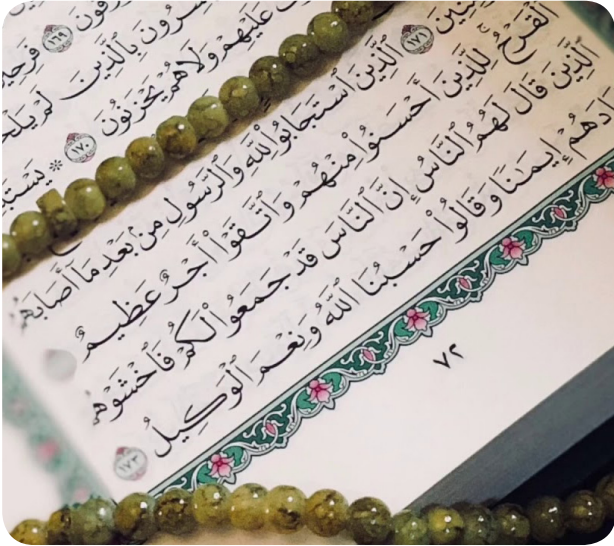 ١٦٩ فَرِحِي
بِٱلَّذِينَ لَمْ
عَلَيْهِمْ وَلَا هُمْ يَحْزَنُونَ ١٧٠ ۞
١٧١ ٱلَّذِينَ ٱسْتَجَابُوا۟ لِلَّهِ وَٱلرَّسُولِ مِنۢ بَعْدِ مَآ أَصَابَهُمُ
ٱلْقَرْحُ ۚ لِلَّذِينَ أَحْسَنُوا۟ مِنْهُمْ وَٱتَّقَوْا۟ أَجْرٌ عَظِيمٌ
ٱلَّذِينَ قَالَ لَهُمُ ٱلنَّاسُ إِنَّ ٱلنَّاسَ قَدْ جَمَعُوا۟ لَكُمْ فَٱخْشَوْهُمْ
ادَهُمْ إِيمَٰنًا وَقَالُوا۟ حَسْبُنَا ٱللَّهُ وَنِعْمَ ٱلْوَكِيلُ ١٧٣
٧٢